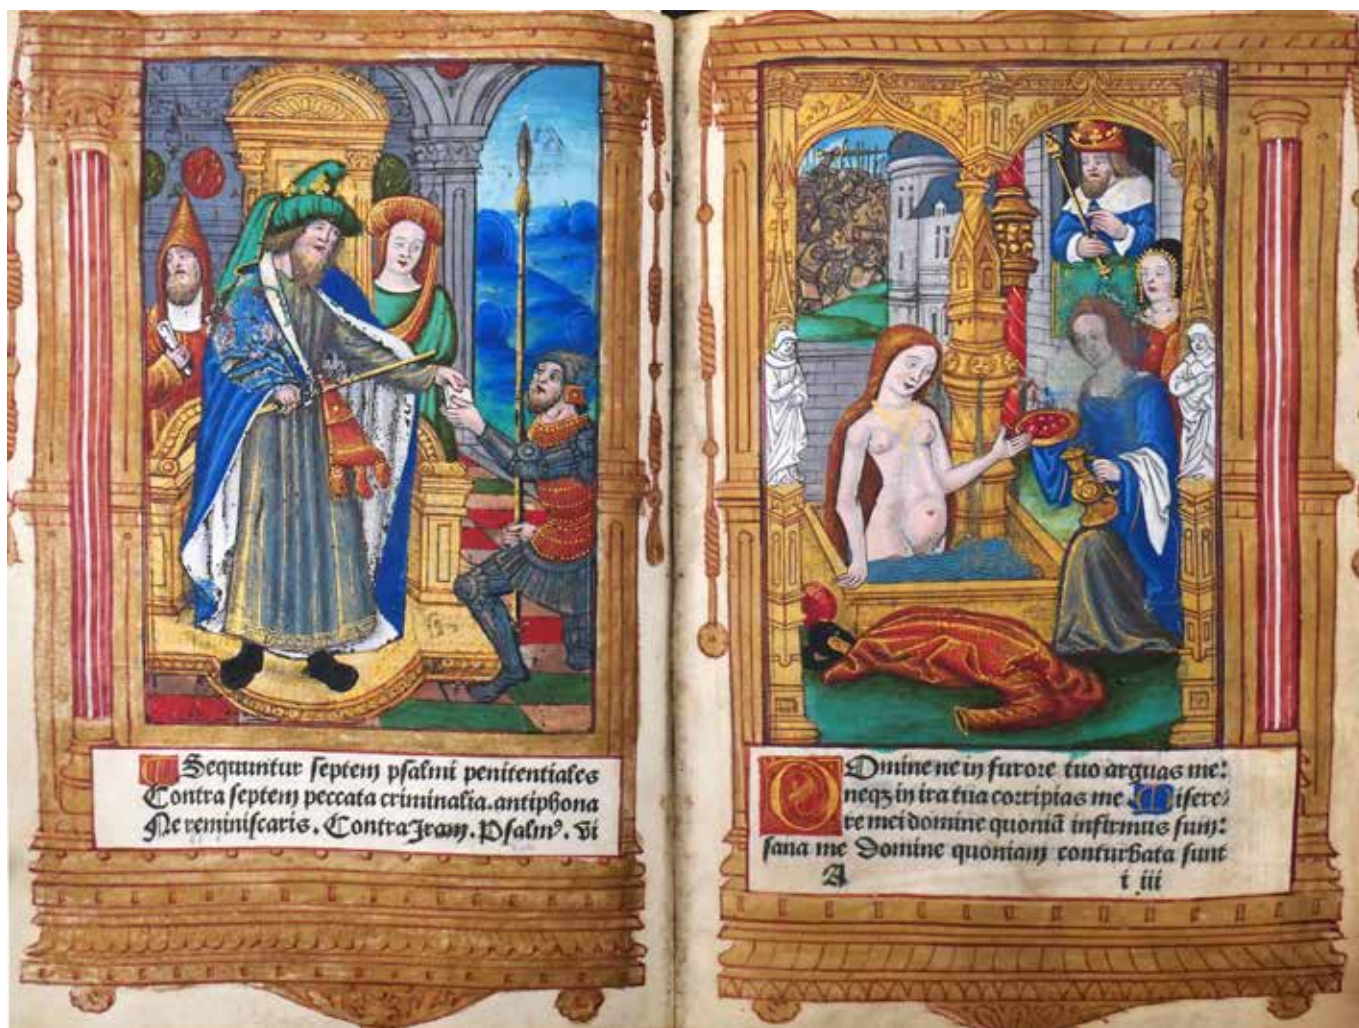 Sequuntur septem psalmi penitentiales
Contra septem peccata criminalia. antiphona
Ne reminiscaris. Contra Iram. Psalmꝰ. vi
Domine ne in furore tuo arguas me:
neqꝫ in ira tua corripias me Misere/
re mei domine quoniā infirmus sum:
sana me Domine quoniam conturbata sunt
A i iii